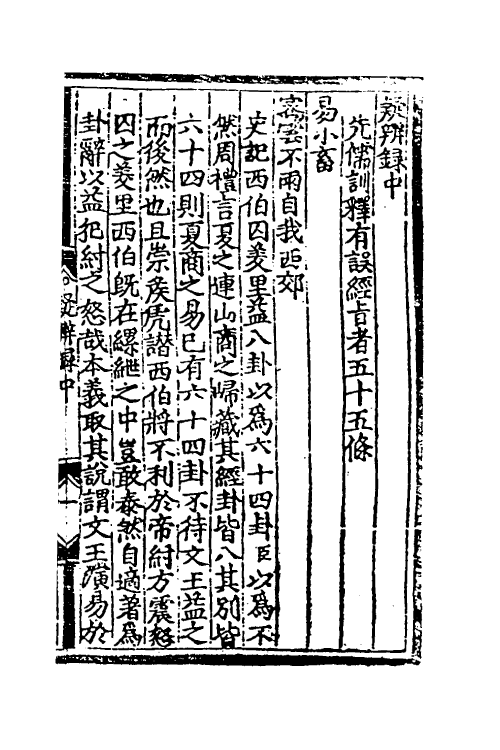 疑辨録中
先儒訓釋有誤經旨者五十五條
易小畜
密雲不雨自我西郊
史記西伯囚羑里益八卦以爲六十四卦臣以爲不
然周禮言夏之連山商之歸藏其經卦皆八其別皆
六十四則夏商之易已有六十四卦不待文王益之
而後然也且崇侯虎譖西伯將不利於帝紂方震怒
囚之羑里西伯既在縲紲之中豈敢泰然自適著爲
卦辭以益犯紂之怒哉本義取其說謂文王演易於
疑辨録中
一